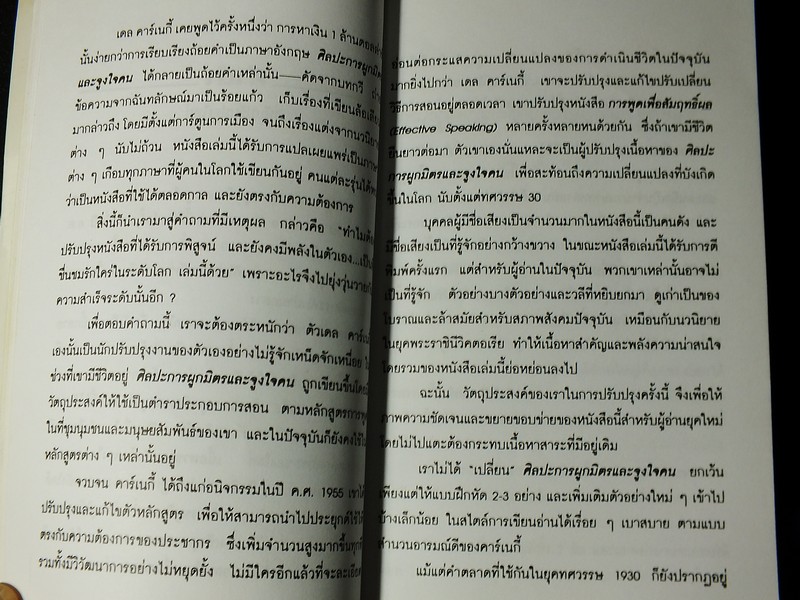 เดล คาร์เนกี้ เคยพูดไว้ครั้งหนึ่งว่า การหาเงิน 1 ล้านดอลล่า
นั้นง่ายกว่าการเรียบเรียงถ้อยคำเป็นภาษาอังกฤษ ศิลปะการผูกมิตร
และจูงใจคน ได้กลายเป็นถ้อยคำเหล่านั้น——คัดจากบทกวี
ข้อความจากฉันทลักษณ์มาเป็นร้อยแก้ว เก็บเรื่องที่เขียนล้อเลียน
มากล่าวถึง โดยมีตั้งแต่การ์ตูนการเมือง จนถึงเรื่องแต่งจากนวนิยาย
ต่าง ๆ นับไม่ถ้วน หนังสือเล่มนี้ได้รับการแปลเผยแพร่เป็นภาษา
ต่าง ๆ เกือบทุกภาษาที่ผู้คนในโลกใช้เขียนกันอยู่ คนแต่ละรุ่นได้
ว่าเป็นหนังสือที่ใช้ได้ตลอดกาล และยังตรงกับความต้องการ
สิ่งนี้ก็นำเรามาสู่คำถามที่มีเหตุผล กล่าวคือ "ทำไมต้อง
ปรับปรุงหนังสือที่ได้รับการพิสูจน์ และยังคงมีพลังในตัวเอง...เป็นที่
ชื่นชมรักใคร่ในระดับโลก เล่มนี้ด้วย" เพราะอะไรจึงไปยุ่งวุ่นวายกับ
ความสำเร็จระดับนั้นอีก ?
เพื่อตอบคำถามนี้ เราจะต้องตระหนักว่า ตัวเดล คาร์เนกี้
เองนั้นเป็นนักปรับปรุงงานของตัวเองอย่างไม่รู้จักเหน็ดจักเหนื่อย
ช่วงที่เขามีชีวิตอยู่ ศิลปะการผูกมิตรและจูงใจคน ถูกเขียนขึ้นโดยมี
วัตถุประสงค์ให้ใช้เป็นตำราประกอบการสอน ตามหลักสูตรการพูด
ในที่ชุมนุมชนและมนุษยสัมพันธ์ของเขา และในปัจจุบันก็ยังคงใช้ใน
หลักสูตรต่าง ๆ เหล่านั้นอยู่
จวบจน คาร์เนกี้ ได้ถึงแก่อนิจกรรมในปี ค.ศ. 1955 เขาได้
ปรับปรุงและแก้ไขตัวหลักสูตร เพื่อให้สามารถนำไปประยุกต์ใช้ได้
ตรงกับความต้องการของประชากร ซึ่งเพิ่มจำนวนสูงมากขึ้นทุกที
รวมทั้งมีวิวัฒนาการอย่างไม่หยุดยั้ง ไม่มีใครอีกแล้วที่จะละเอียด
อ่อนต่อกระแสความเปลี่ยนแปลงของการดำเนินชีวิตในปัจจุบัน
มากยิ่งไปกว่า เดล คาร์เนกี้ เขาจะปรับปรุงและแก้ไขปรับเปลี่ยน
วิธีการสอนอยู่ตลอดเวลา เขาปรับปรุงหนังสือ การพูดเพื่อสัมฤทธิ์ผล
(Effective Speaking) หลายครั้งหลายหนด้วยกัน ซึ่งถ้าเขามีชีวิต
ยืนยาวต่อมา ตัวเขาเองนั่นแหละจะเป็นผู้ปรับปรุงเนื้อหาของ ศิลปะ
การผูกมิตรและจูงใจคน เพื่อสะท้อนถึงความเปลี่ยนแปลงที่บังเกิด
ขึ้นในโลก นับตั้งแต่ทศวรรษ 30
บุคคลผู้มีชื่อเสียงเป็นจำนวนมากในหนังสือนี้เป็นคนดัง และ
มีชื่อเสียงเป็นที่รู้จักอย่างกว้างขวาง ในขณะหนังสือเล่มนี้ได้รับการตี
พิมพ์ครั้งแรก แต่สำหรับผู้อ่านในปัจจุบัน พวกเขาเหล่านั้นอาจไม่
เป็นที่รู้จัก ตัวอย่างบางตัวอย่างและวลีที่หยิบยกมา ดูเก่าเป็นของ
โบราณและล้าสมัยสำหรับสภาพสังคมปัจจุบัน เหมือนกับนวนิยาย
ในยุคพระราชินีวิคตอเรีย ทำให้เนื้อหาสำคัญและพลังความน่าสนใจ
โดยรวมของหนังสือเล่มนี้ย่อหย่อนลงไป
ฉะนั้น วัตถุประสงค์ของเราในการปรับปรุงครั้งนี้ จึงเพื่อให้
ภาพความชัดเจนและขยายขอบข่ายของหนังสือนี้สำหรับผู้อ่านยุคใหม่
โดยไม่ไปแตะต้องกระทบเนื้อหาสาระที่มีอยู่เดิม
เราไม่ได้ "เปลี่ยน" ศิลปะการผูกมิตรและจูงใจคน ยกเว้น
เพียงแต่ให้แบบฝึกหัด 2-3 อย่าง และเพิ่มเติมตัวอย่างใหม่ ๆ เข้าไป
บ้างเล็กน้อย ในสไตล์การเขียนอ่านได้เรื่อย ๆ เบาสบาย ตามแบบ
สำนวนอารมณ์ดีของคาร์เนกี้
แม้แต่คำตลาดที่ใช้กันในยุคทศวรรษ 1930 ก็ยังปรากฏอยู่